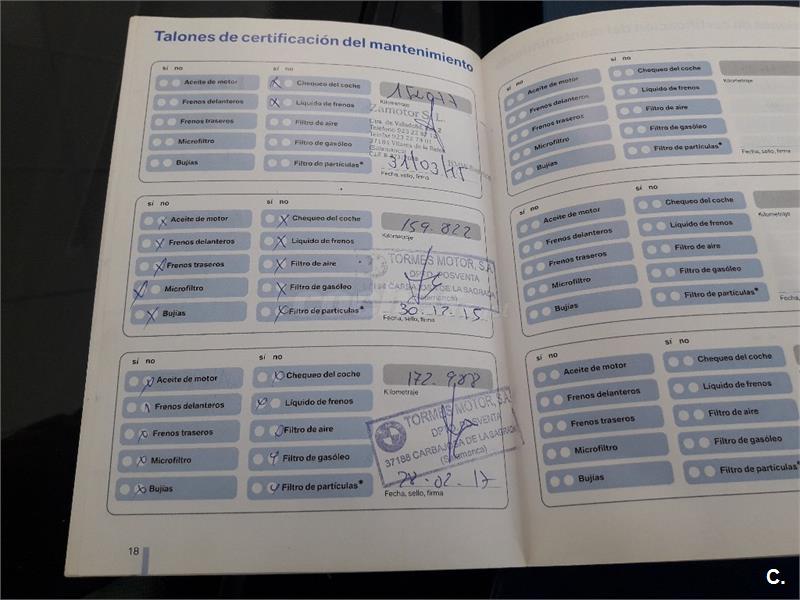 Talones de certificación del mantenimiento
sí no
sí no
Aceite de motor
Chequeo del coche
Frenos delanteros
Líquido de frenos
Kilometraje
Frenos traseros
Filtro de aire
Zamotor S.L.
Microfiltro
Filtro de gasóleo
37185 Villares de la Reina
(Salamanca)
Bujías
Filtro de partículas*
31/03/15
Fecha, sello, firma
sí no
sí no
Aceite de motor
Chequeo del coche
159.822
Frenos delanteros
Líquido de frenos
Kilometraje
Frenos traseros
Filtro de aire
TORMES MOTOR, S.A.
DPTO. POSVENTA
Microfiltro
Filtro de gasóleo
37188 CARBAJOSA DE LA SAGRADA
(Salamanca)
Bujías
Filtro de partículas*
30.12.15
Fecha, sello, firma
sí no
sí no
Aceite de motor
Chequeo del coche
172.988
Frenos delanteros
Líquido de frenos
Kilometraje
Frenos traseros
Filtro de aire
TORMES MOTOR, S.A.
DPTO. POSVENTA
Microfiltro
Filtro de gasóleo
37188 CARBAJOSA DE LA SAGRADA
(Salamanca)
Bujías
Filtro de partículas*
28-02-17
Fecha, sello, firma
18
sí no
sí no
Aceite de motor
Chequeo del coche
Frenos delanteros
Líquido de frenos
Kilometraje
Frenos traseros
Filtro de aire
Microfiltro
Filtro de gasóleo
Bujías
Filtro de partículas*
Fecha, sello, firma
sí no
sí no
Aceite de motor
Chequeo del coche
Frenos delanteros
Líquido de frenos
Kilometraje
Frenos traseros
Filtro de aire
Microfiltro
Filtro de gasóleo
Bujías
Filtro de partículas*
Fecha, sello, firma
sí no
sí no
Aceite de motor
Chequeo del coche
Frenos delanteros
Líquido de frenos
Frenos traseros
Filtro de aire
Microfiltro
Filtro de gasóleo
Bujías
Filtro de partículas*
C.